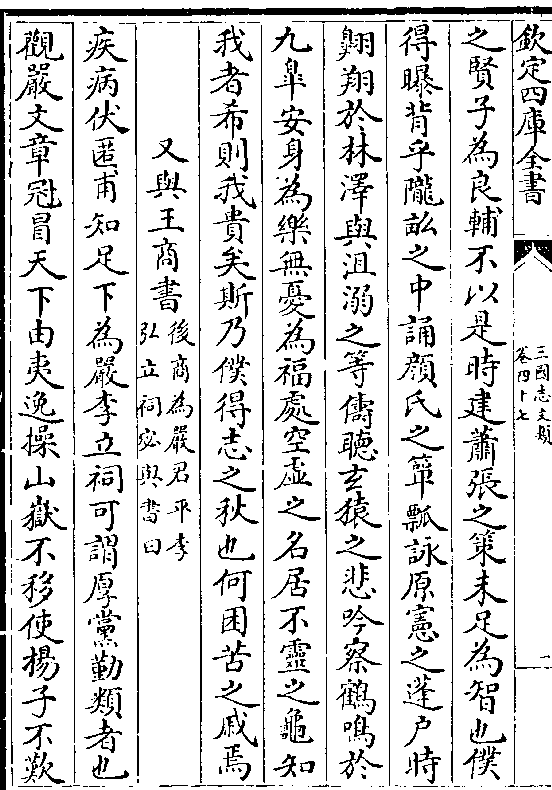 欽定四庫全書
三國志文類
卷四十七
一
之賢子為良輔不以是時建蕭張之策未足為智也僕
得曝背乎隴畝之中誦顔氏之簞瓢詠原憲之蓬户時
翺翔於林澤與沮溺之等儔聽𤣥猿之悲吟察鶴鳴於
九臯安身為樂無憂為福處空虚之名居不靈之龜知
我者希則我貴矣斯乃僕得志之秋也何困苦之戚焉
又與王商書後商為嚴君平李
弘立祠宓與書曰
疾病伏匿甫知足下為嚴李立祠可謂厚黨勤類者也
觀嚴文章冠冒天下由夷逸操山嶽不移使揚子不歎